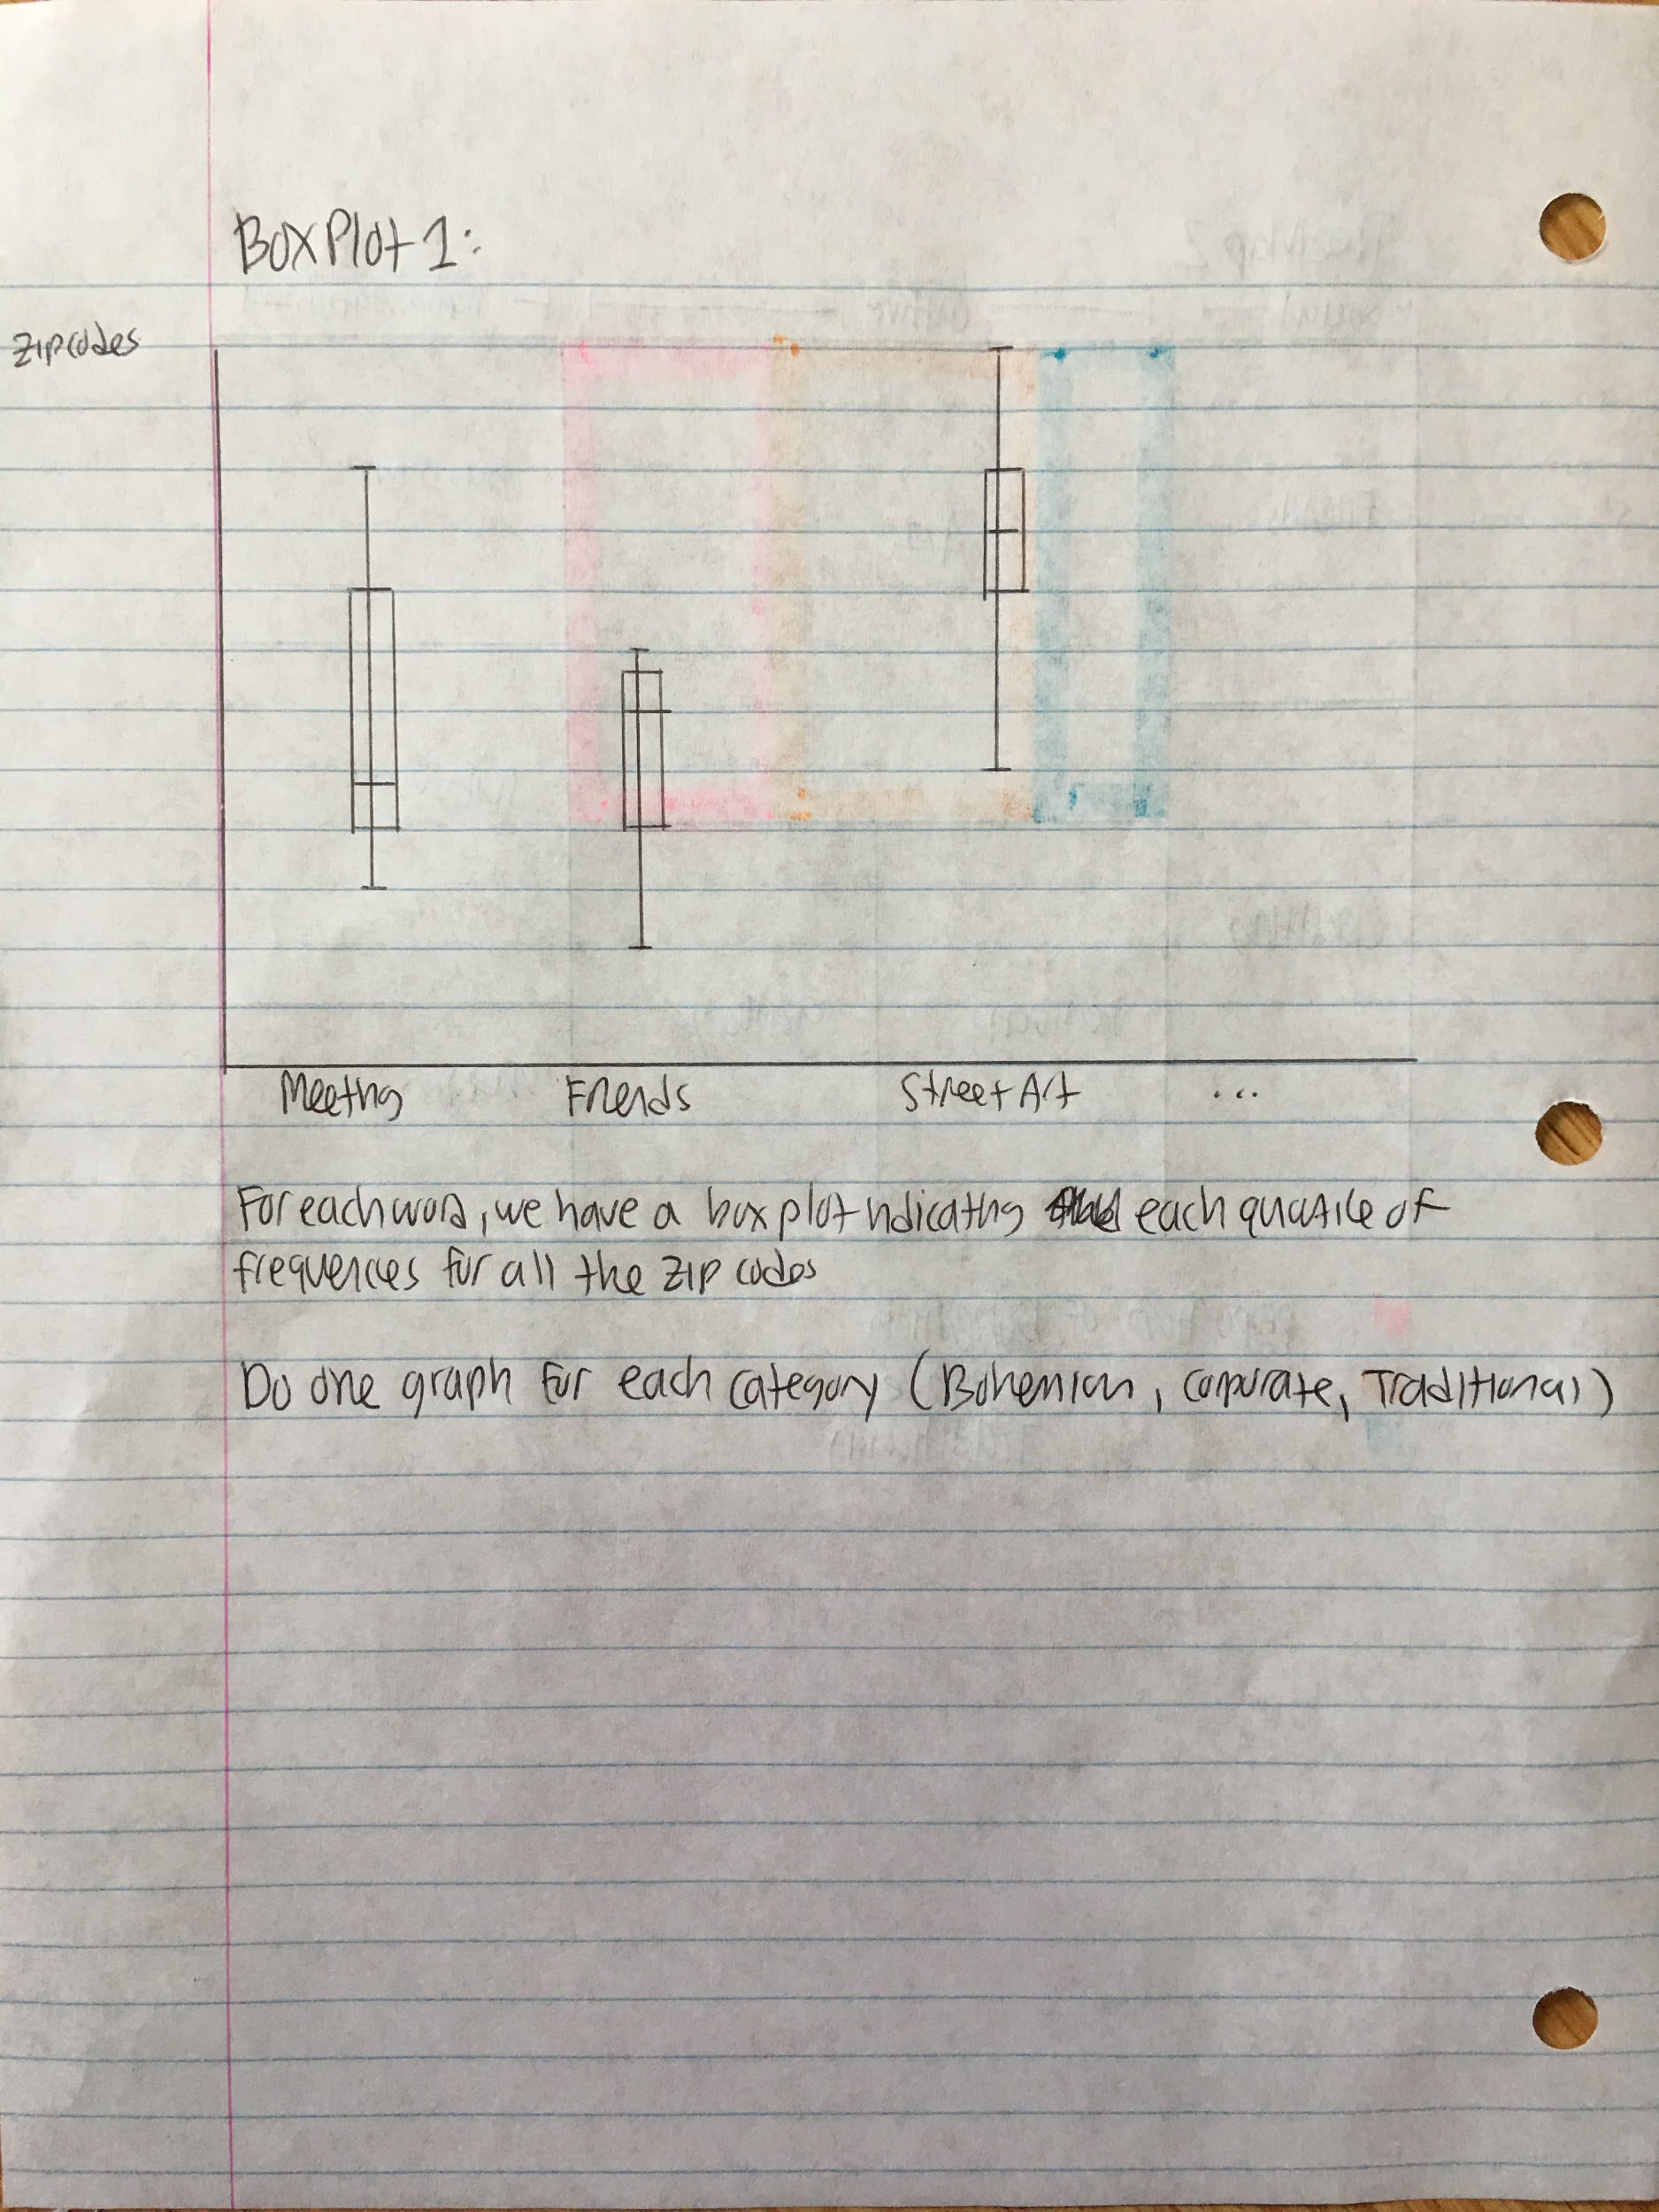 Box Plot 1:
Zipcodes
Meeting Friends Street Art ...
For each word, we have a box plot indicating each quartile of
frequencies for all the zip codes
Do one graph for each category (Bohemian, corporate, Traditional)